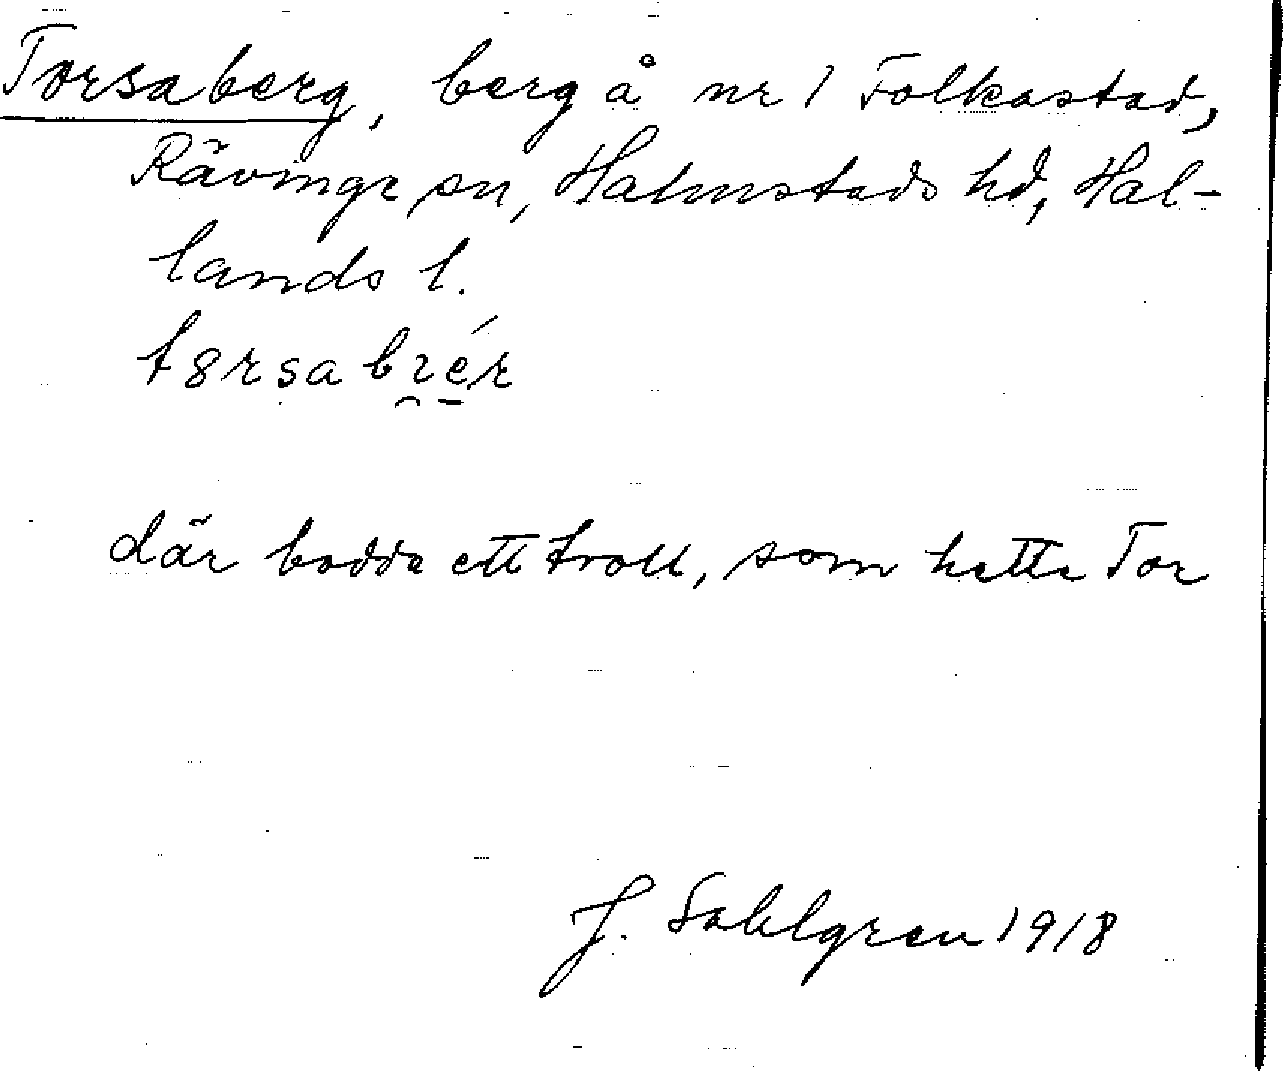 Torsaberg, berg å nr 1 Folkastad,
Rävinge sn, Halmstads hd, Hal-
lands l.
där bodde ett troll, som hette Tor
J. Sahlgren 1918